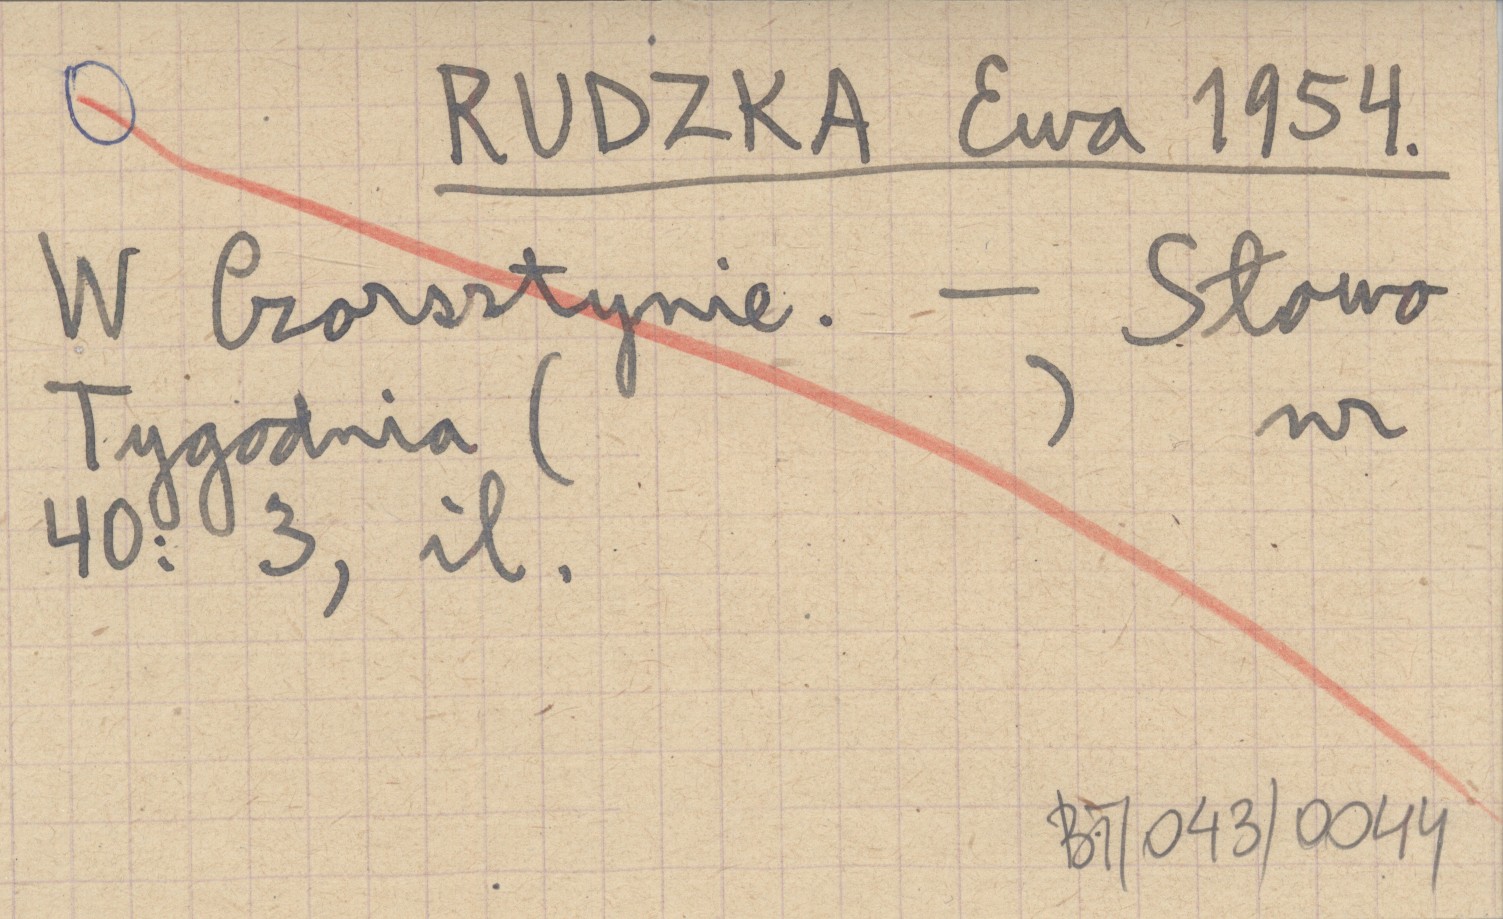 RUDZKA Ewa 1954.
W Czorsztynie. — Słowo
Tygodnia ( ) nr
40: 3, il.
BT/043/0044